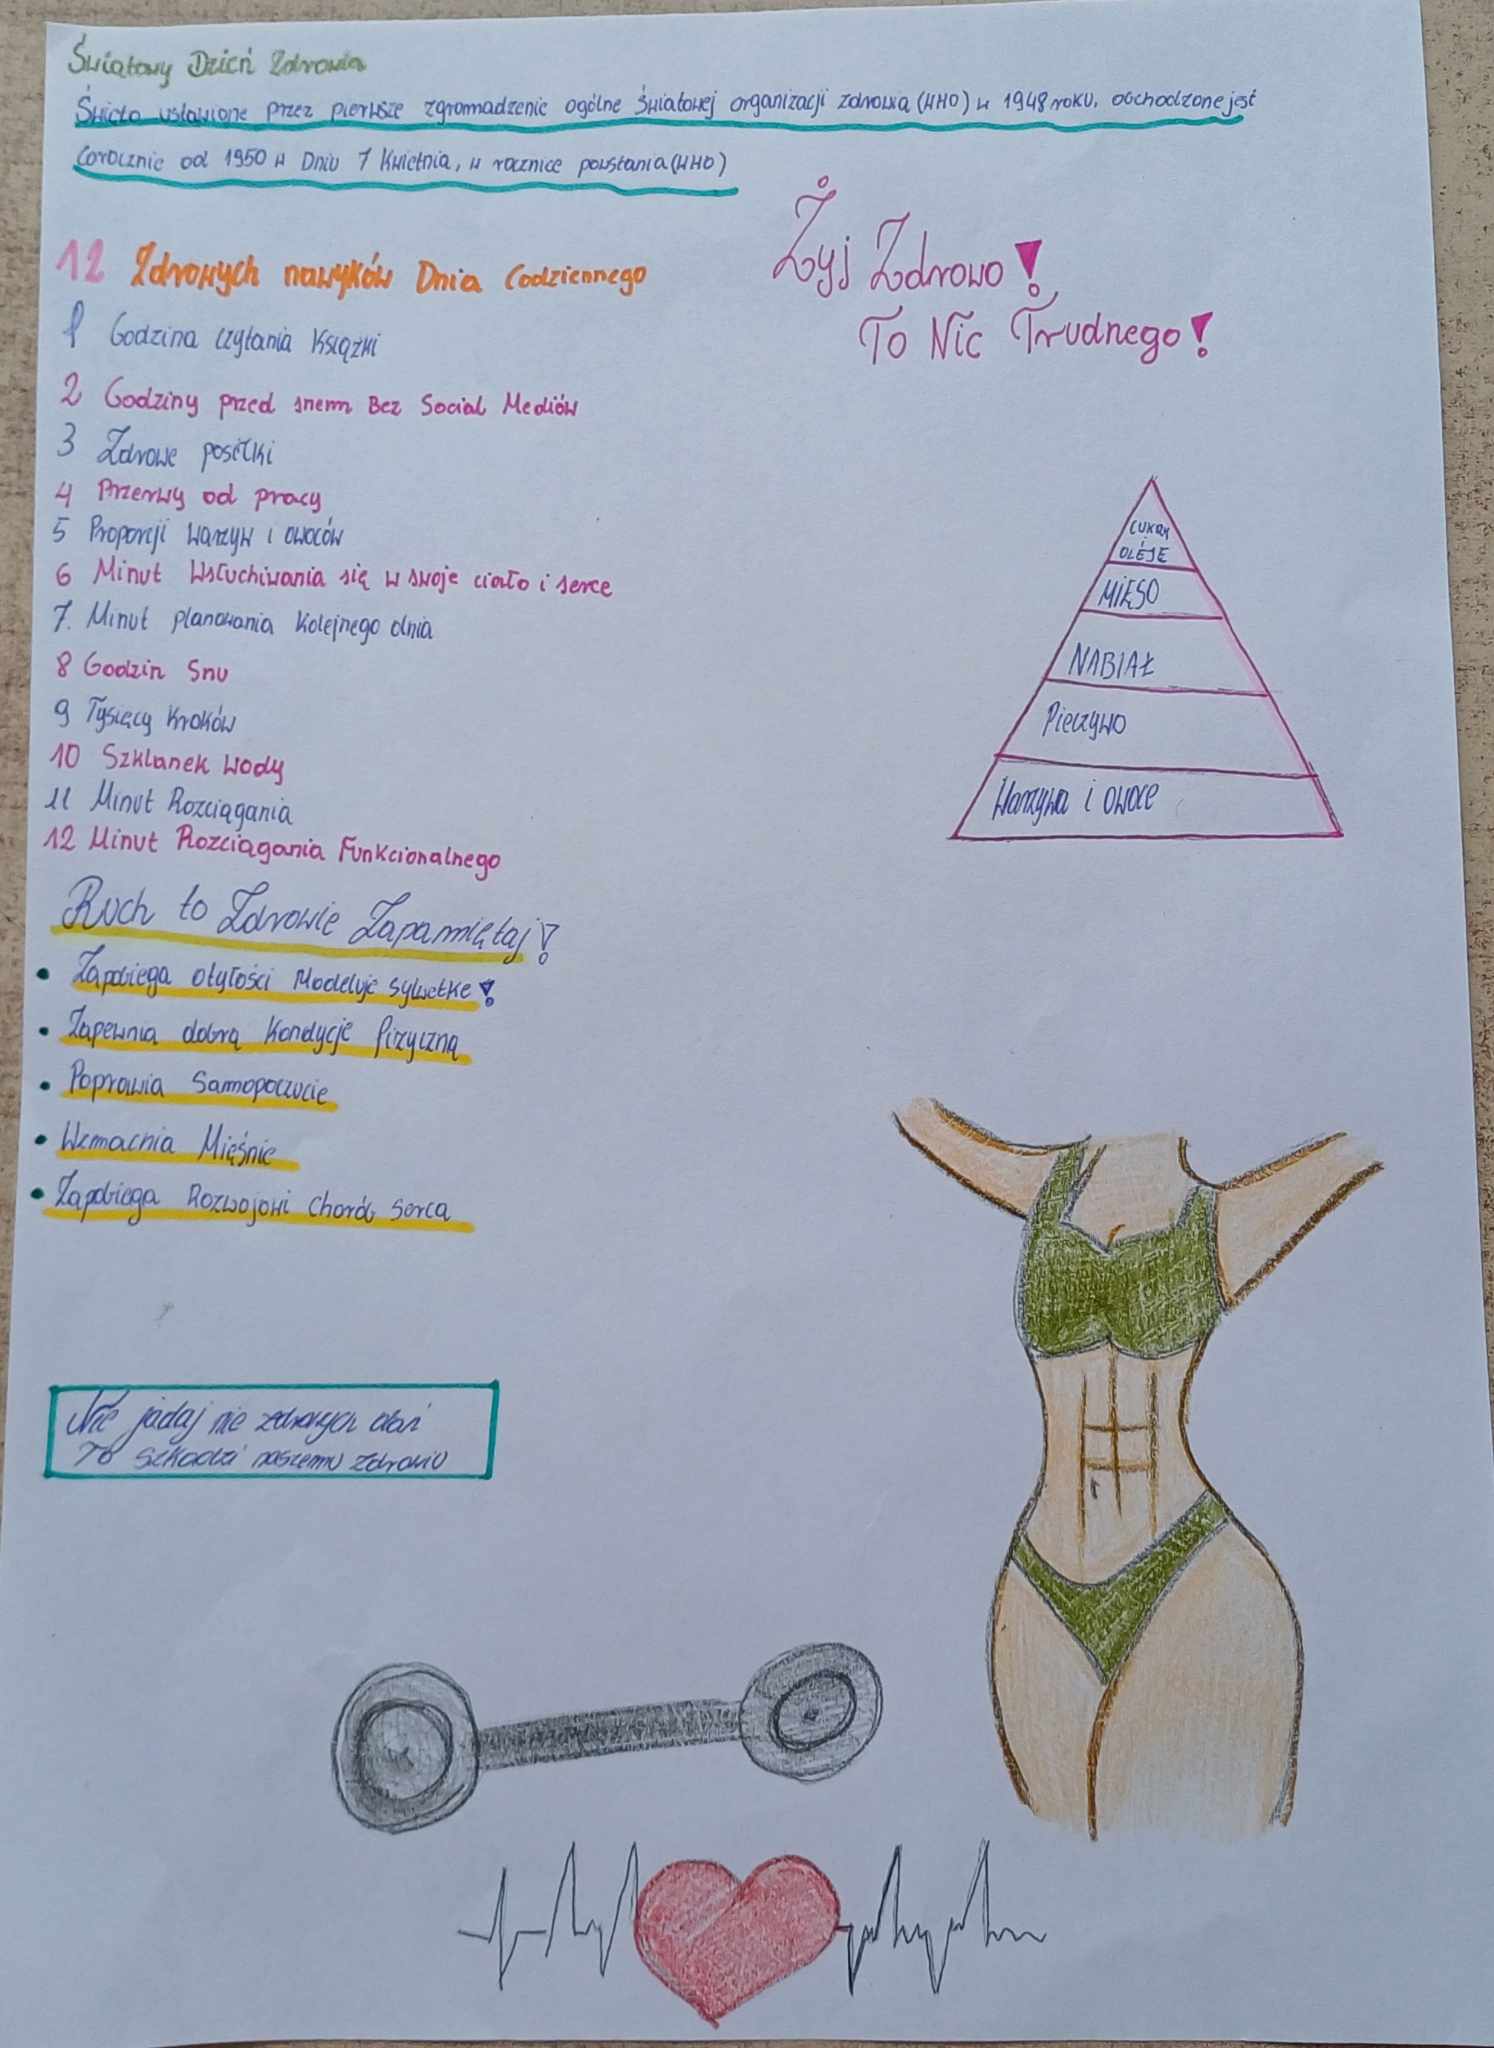 Światowy Dzień Zdrowia
Święto ustawione przez pierwsze zgromadzenie ogólne światowej organizacji zdrowia (WHO) w 1948 roku, obchodzone jest
Corocznie od 1950 w Dniu 7 Kwietnia, w rocznice powstania (WHO)
Żyj Zdrowo!
To Nic Trudnego!
12 Zdrowych nawyków Dnia Codziennego
1 Godzina czytania Książki
2 Godziny przed snem Bez Social Mediów
3 Zdrowe posiłki
4 Przerwy od pracy
5 Proporcji warzyw i owoców
6 Minut Wsłuchiwania się w swoje ciało i serce
7. Minut planowania Kolejnego dnia
8 Godzin Snu
9 Tysięcy Kroków
10 Szklanek Wody
11 Minut Rozciągania
12 Minut Rozciągania Funkcionalnego
CUKRY
i
OLEJE
MIĘSO
NABIAŁ
Pieczywo
Warzywa i owoce
Ruch to Zdrowie Zapamiętaj!
• Zapobiega otyłości Modeluje sylwetke!
• Zapewnia dobrą Kondycje fizyczną
• Poprawia Samopoczucie
• Wzmacnia Mięśnie
• Zapobiega Rozwojowi Chorób Serca
Nie jadaj nie zdrowych dań
To Szkodzi naszemu Zdrowiu